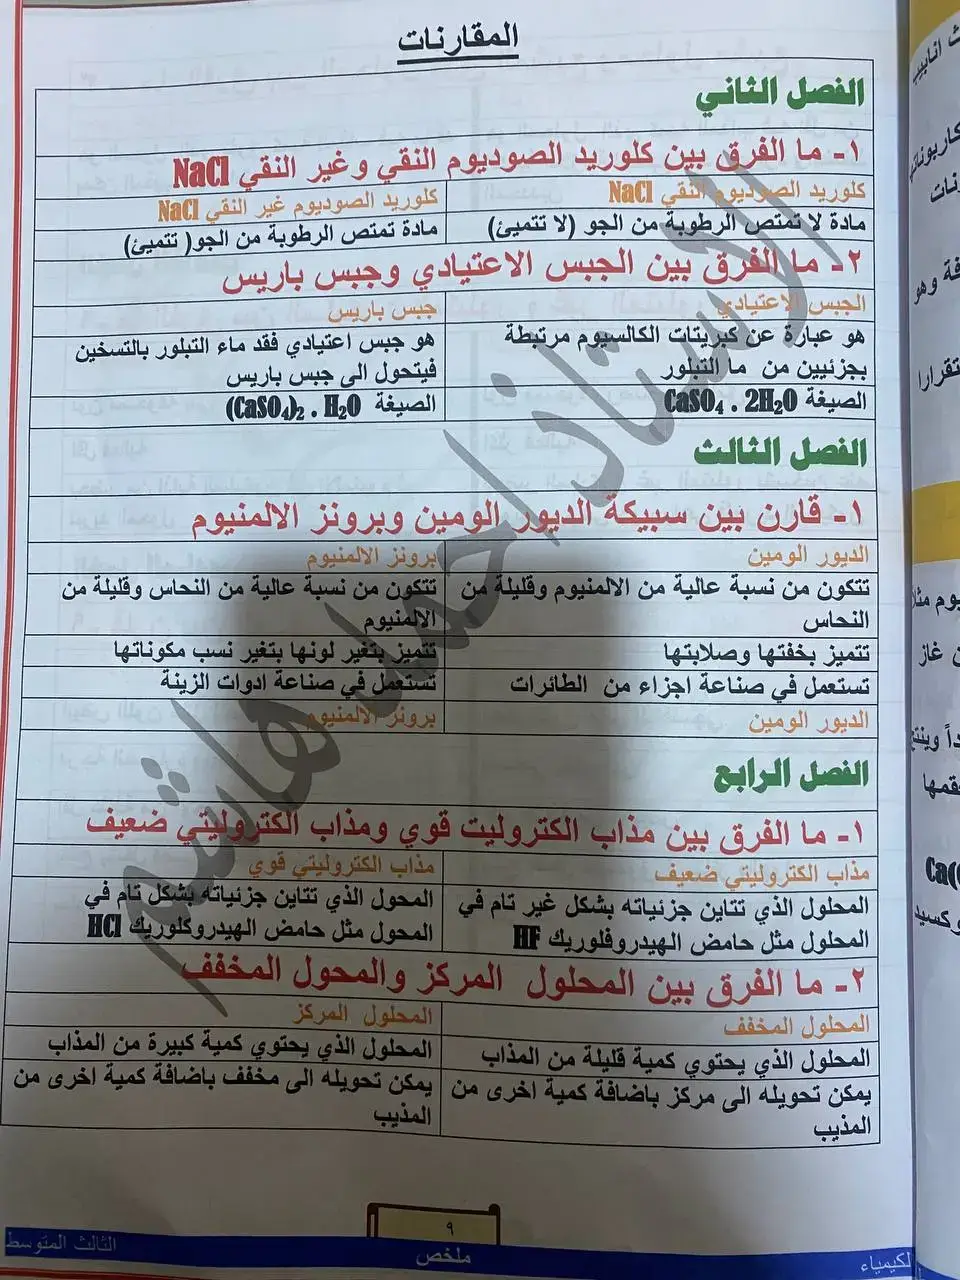 المقارنات
الفصل الثاني
١- ما الفرق بين كلوريد الصوديوم النقي وغير النقي NaCl
كلوريد الصوديوم النقي NaCl
كلوريد الصوديوم غير النقي NaCl
مادة لا تمتص الرطوبة من الجو (لا تتميئ)
مادة تمتص الرطوبة من الجو( تتميئ)
٢- ما الفرق بين الجبس الاعتيادي وجبس باريس
الجبس الاعتيادي
جبس باريس
هو عبارة عن كبريتات الكالسيوم مرتبطة
بجزئيين من ما التبلور
هو جبس اعتيادي فقد ماء التبلور بالتسخين
فيتحول الى جبس باريس
الصيغة CaSO₄ . 2H₂O
الصيغة (CaSO₄)₂ . H₂O
الفصل الثالث
١- قارن بين سبيكة الديور الومين وبرونز الالمنيوم
الديور الومين
برونز الالمنيوم
تتكون من نسبة عالية من الالمنيوم وقليلة من
النحاس
تتكون من نسبة عالية من النحاس وقليلة من
الالمنيوم
تتميز بخفتها وصلابتها
تتميز بتغير لونها بتغير نسب مكوناتها
تستعمل في صناعة اجزاء من الطائرات
تستعمل في صناعة ادوات الزينة
الديور الومين
برونز الالمنيوم
الفصل الرابع
١- ما الفرق بين مذاب الكتروليت قوي ومذاب الكتروليتي ضعيف
مذاب الكتروليتي ضعيف
مذاب الكتروليتي قوي
المحلول الذي تتاين جزئياته بشكل غير تام في
المحلول مثل حامض الهيدروفلوريك HF
المحول الذي تتاين جزئياته بشكل تام في
المحول مثل حامض الهيدروكلوريك HCl
٢- ما الفرق بين المحلول المركز والمحول المخفف
المحلول المخفف
المحلول المركز
المحلول الذي يحتوي كمية قليلة من المذاب
المحلول الذي يحتوي كمية كبيرة من المذاب
يمكن تحويله الى مركز باضافة كمية اخرى من
المذيب
يمكن تحويله الى مخفف باضافة كمية اخرى من
المذيب
الاستاذ احمد هاشم
٩
ملخص
الثالث المتوسط
الكيمياء
ث انابيب
نات
فة وهو
تقرارا
يوم مثلا
ن غاز
داً وينتج
قمها
Ca(
وكسيد